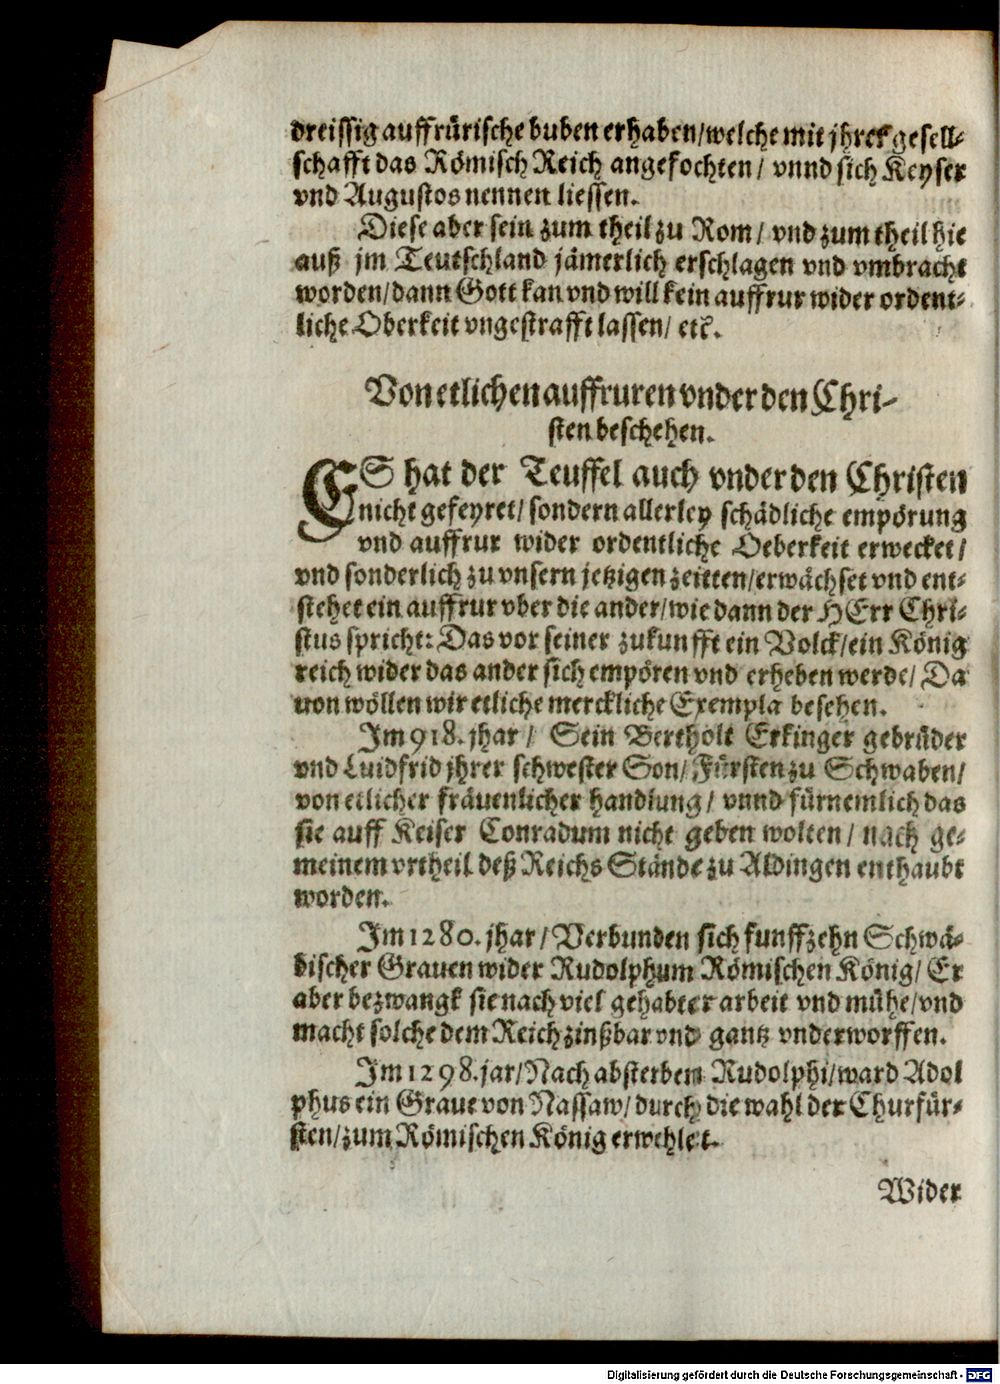 dreissig auffrürische buben erhaben/welche mit jhrer gesell-
schafft das Römisch Reich angefochten/ vnnd sich Keyser
vnd Augustos nennen liessen.
Diese aber sein zum theil zu Rom/ vnd zum theil hie
auß jm Teutschland jämerlich erschlagen vnd vmbracht
worden/dann Gott kan vnd will kein auffrur wider ordent-
liche Oberkeit vngestrafft lassen/ etc.
Von etlichen auffruren vnder den Chri-
sten beschehen.
ES hat der Teuffel auch vnder den Christen
nicht gefeyret/ sondern allerley schädliche empörung
vnd auffrur wider ordentliche Oeberkeit erwecket/
vnd sonderlich zu vnsern jetzigen zeitten/erwächset vnd ent-
stehet ein auffrur vber die ander/wie dann der HErr Chri-
stus spricht: Das vor seiner zukunfft ein Volck/ein König
reich wider das ander sich empören vnd erheben werde/ Da
uon wöllen wir etliche merckliche Exempla besehen.
Im 918. jhar/ Sein Bertholt Erkinger gebrüder
vnd Luidfrid jhrer schwester Son/ Fürsten zu Schwaben/
von etlicher fräuenlicher handlung/ vnnd fürnemlich das
sie auff Keiser Conradum nicht geben wolten/ nach ge-
meinem vrtheil deß Reichs Stände zu Aldingen enthaubt
worden.
Im 1280. jhar/Verbunden sich funffzehn Schwä-
bischer Grauen wider Rudolphum Römischen König/ Er
aber bezwangk sie nach viel gehabter arbeit vnd mühe/vnd
macht solche dem Reich zinßbar vnd gantz vnderworffen.
Im 1298. jar/Nach absterben Rudolphi/ward Adol
phus ein Graue von Nassaw/durch die wahl der Churfür-
sten/zum Römischen König erwehlet.
Wider
Digitalisierung gefördert durch die Deutsche Forschungsgemeinschaft - DFG